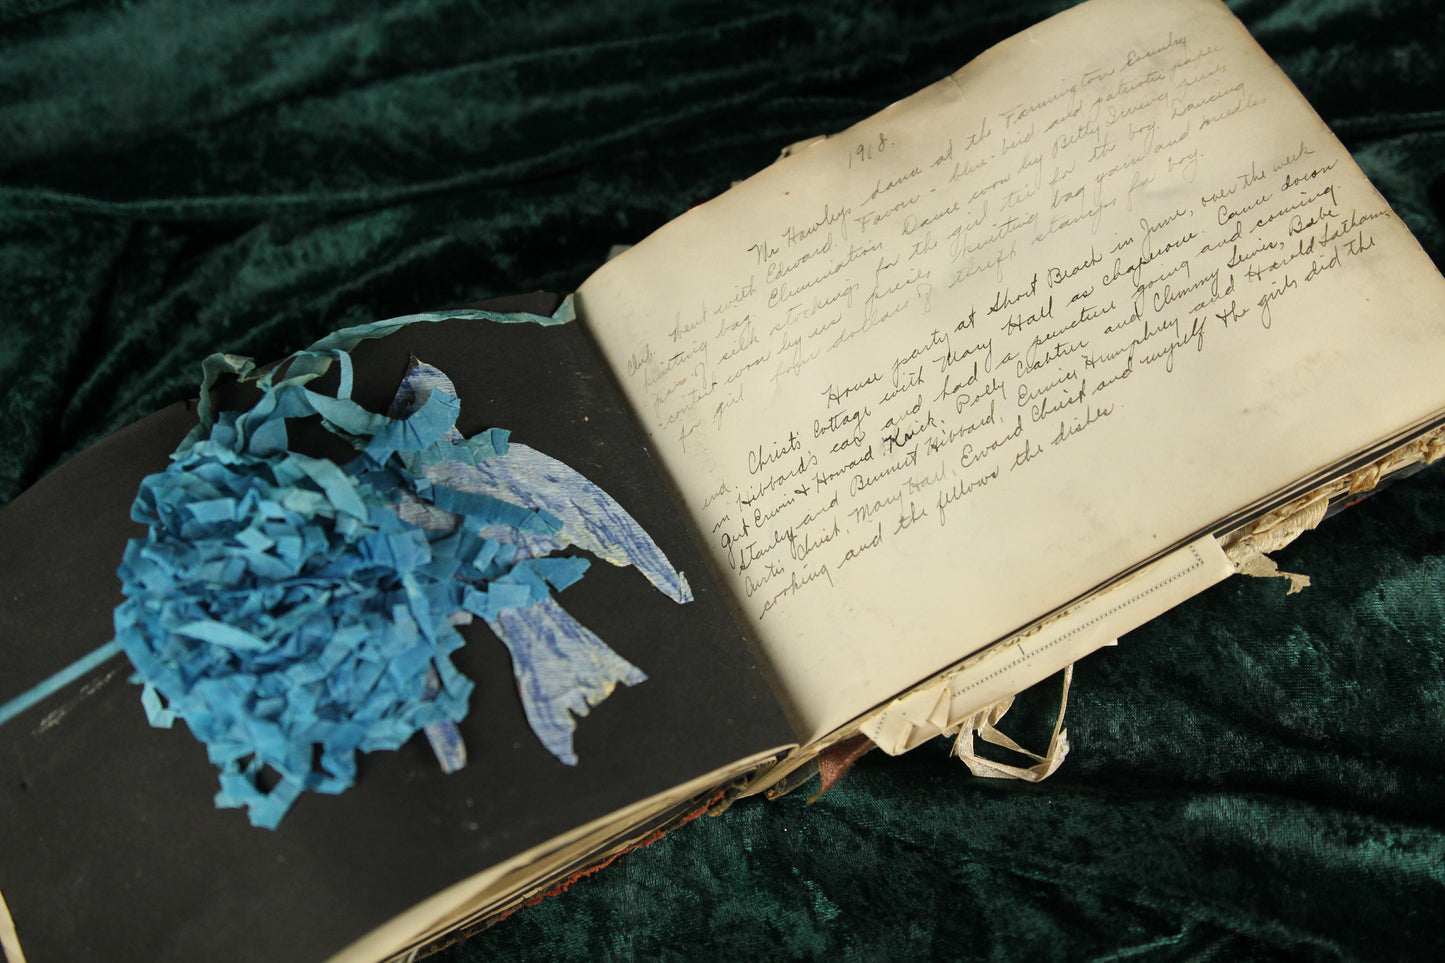 1918.
Mr Hawleys dance at the Farmington Country
Club. Went with Edward. Favors - blue-bird and patriotic paper
knitting bag. Elimination Dance won by Betty Irving
pair of silk stockings for the girl tie for the boy. Dancing
contest won by us prizes knitting bag yarn and needles
for girl four dollars of thrift stamps for boy.
House party at Short Beach in June, over the week
end. Christ's Cottage with Mary Hall as chaperone. Came down
in Hibbard's car and had a puncture going and coming.
Stanley and Bennett Hibbard, Ernies Humphrey and Harold Latham,
Curtis Christ, Mary Hall, Edward Christ and myself & the girls did the
cooking and the fellows the dishes.